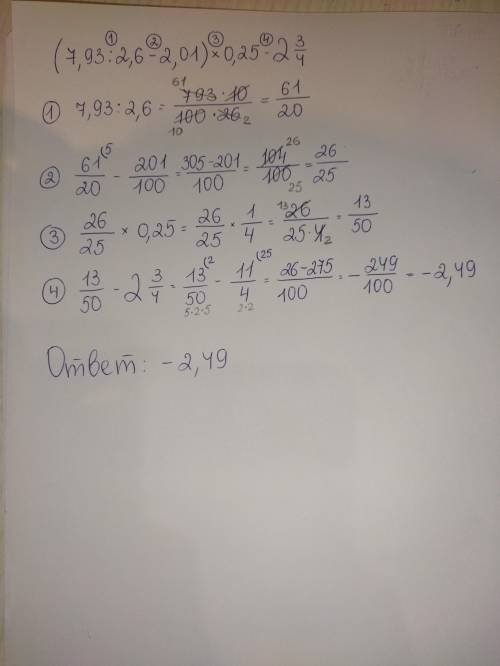 (7,93 : 2,6 - 2,01) × 0,25 - 2 3/4
① 7,93 : 2,6 = 793·10/100·26 = 61/20
② 61/20 - 201/100 = 305-201/100 = 104/100 = 26/25
③ 26/25 × 0,25 = 26/25 × 1/4 = 26/25·4 = 13/50
④ 13/50 - 2 3/4 = 13/50 - 11/4 = 26-275/100 = - 249/100 = -2,49
Ответ: -2,49